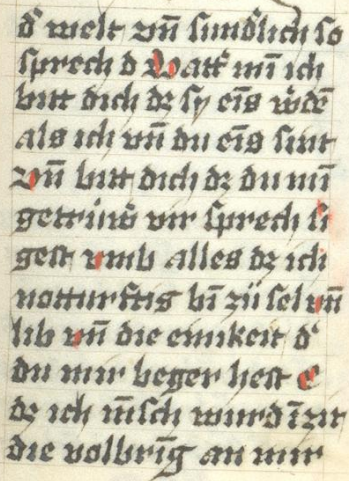 dˢ welt vn̄ sundˢlich so
sprech d vattˢ mī ich
bitt dich dz sy eīs wˢdē
als ich vn̄ du eīs sint
vn̄ bitt dich dz du mī
getrüwˢ vir sprech si
gest vmb alles dz ich
notturftig bī zü sel vn̄
lib vn̄ die einikeit dˢ
du mir beger hest e
dz ich m̄sch wurd ī zit
die volbrīg an mir